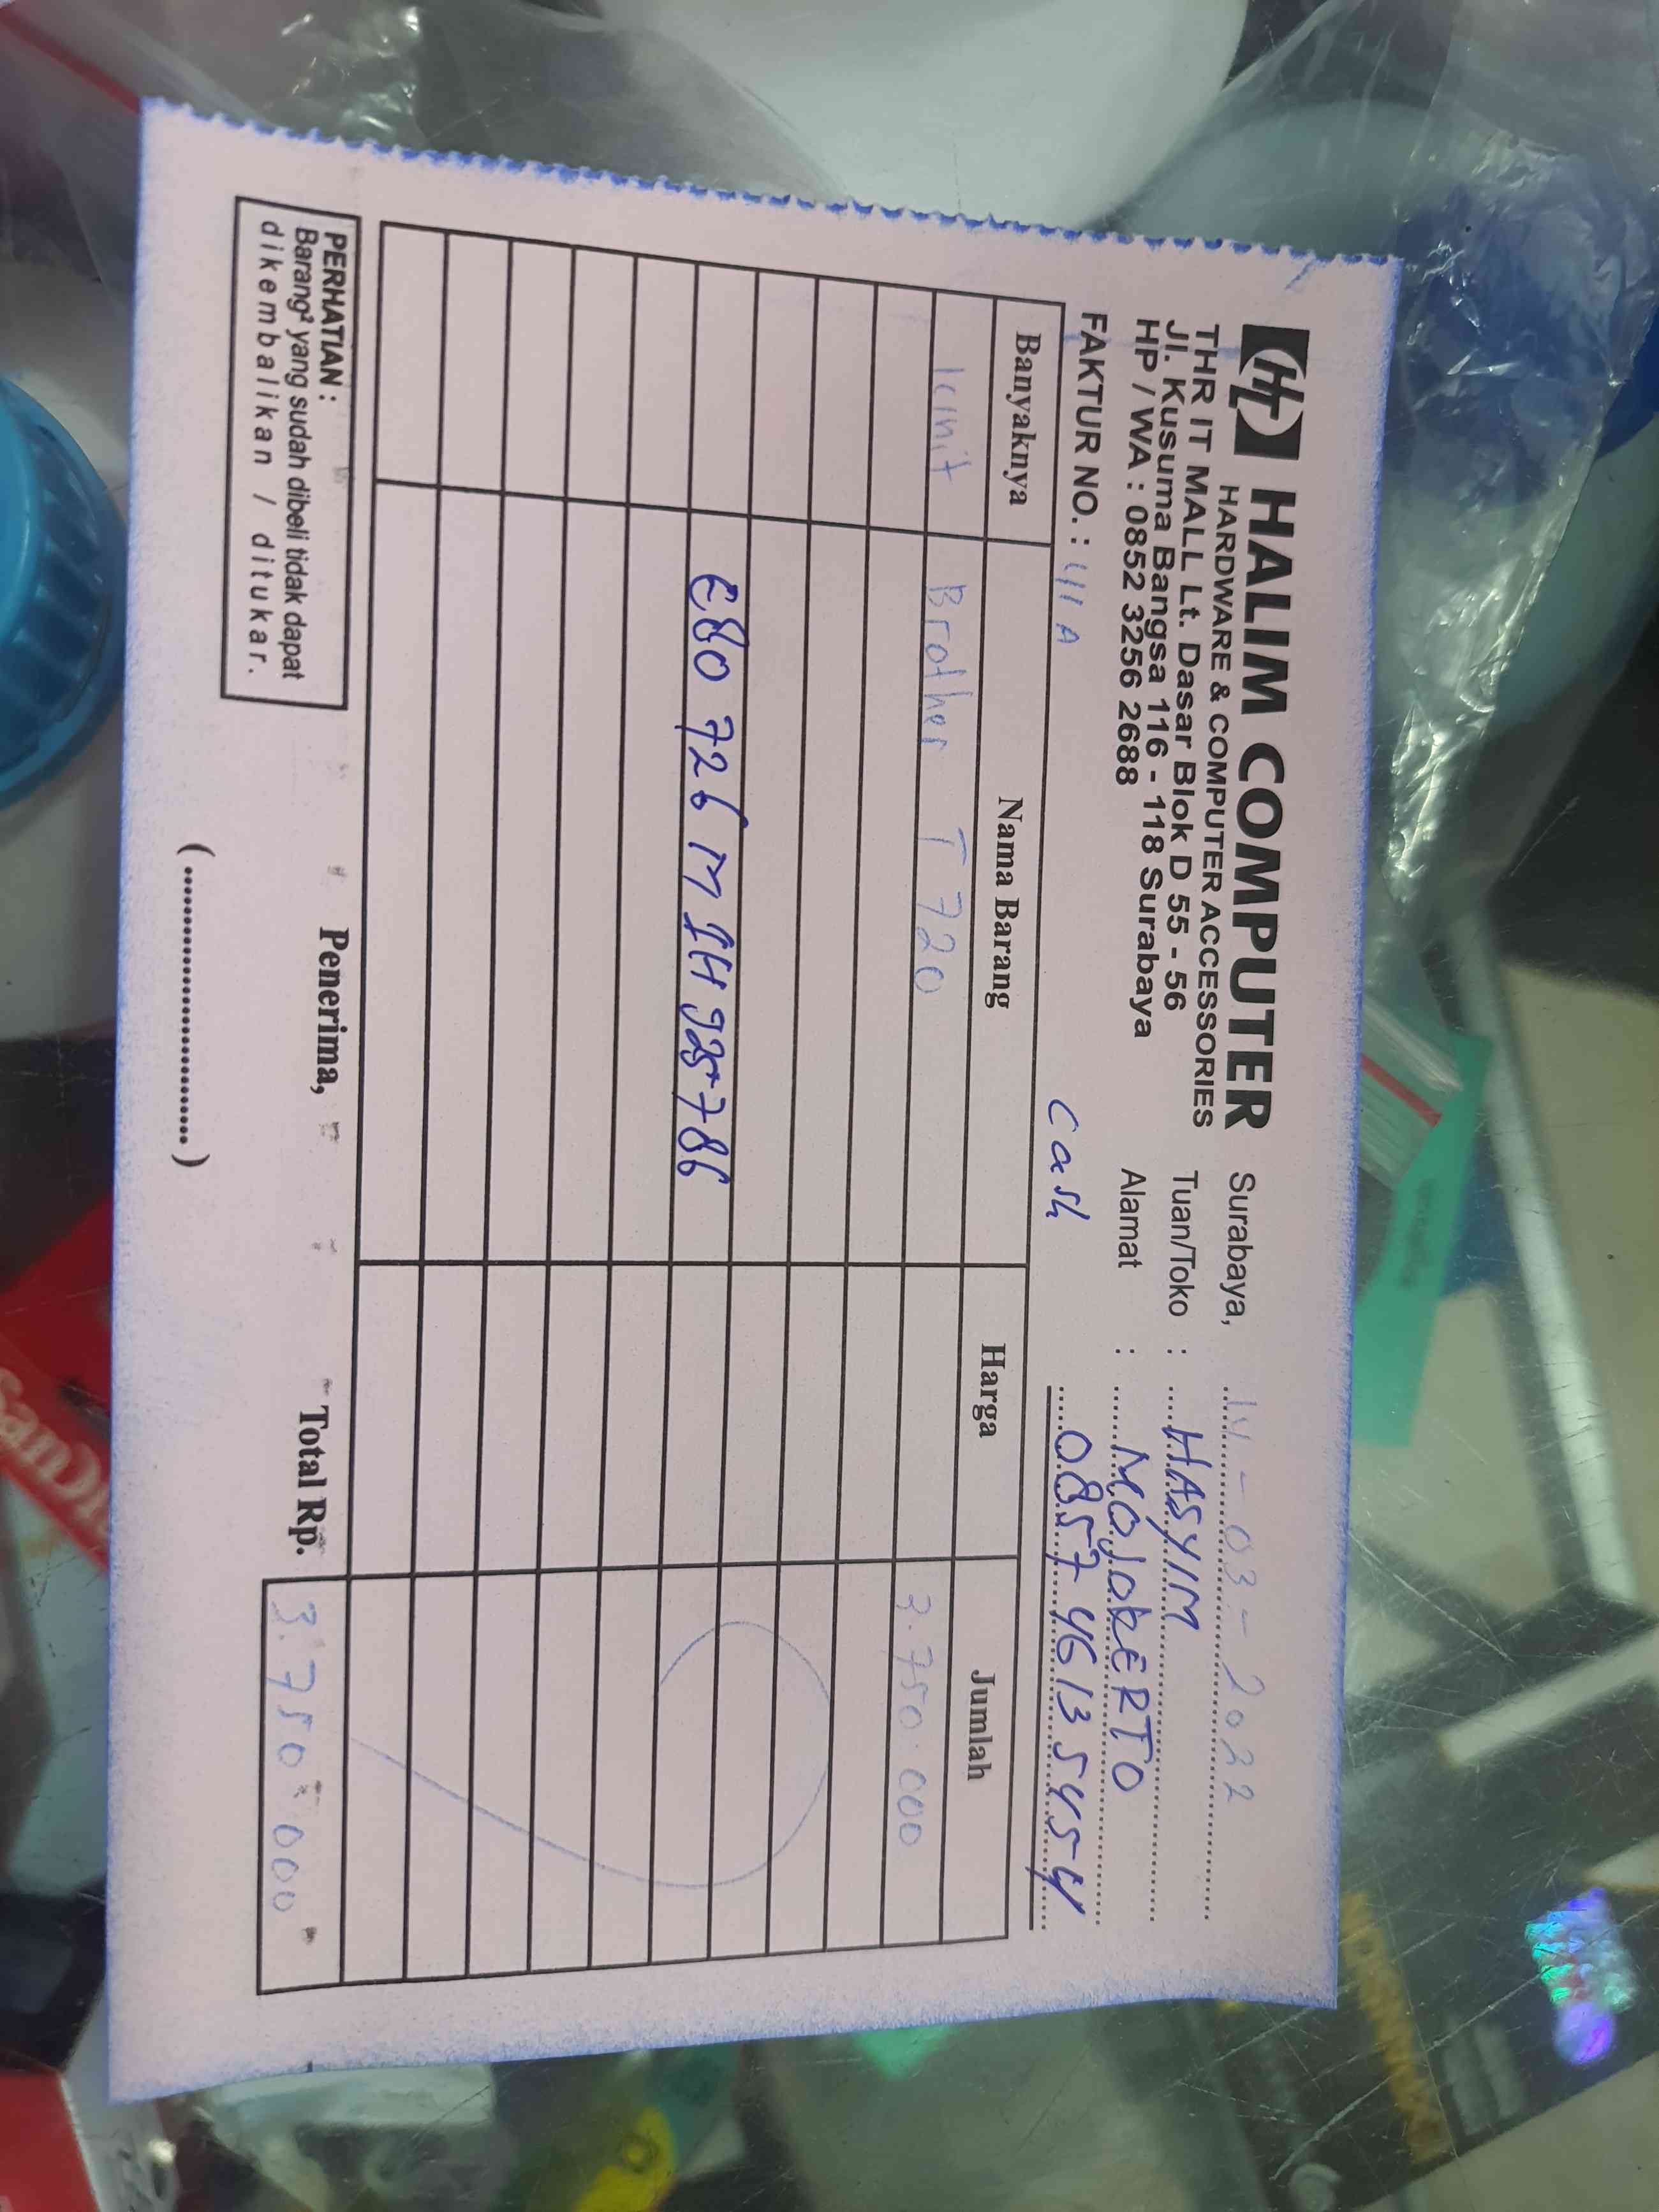 HALIM COMPUTER
HARDWARE & COMPUTER ACCESSORIES
THR IT MALL Lt. Dasar Blok D 55 - 56
Jl. Kusuma Bangsa 116 - 118 Surabaya
HP / WA : 0852 3256 2688
FAKTUR NO. :
Cash
Surabaya, 14 - 03 - 2022
Tuan/Toko : HASYIM
Alamat : MOJOKERTO
0857 4613 5454
Banyaknya Nama Barang Harga Jumlah
1 unit Brother T 720 3.750.000
E80 726 M1H 925786
PERHATIAN :
Barang² yang sudah dibeli tidak dapat
dikembalikan / ditukar.
Penerima,
(..............................)
Total Rp. 3.750.000
SanDi